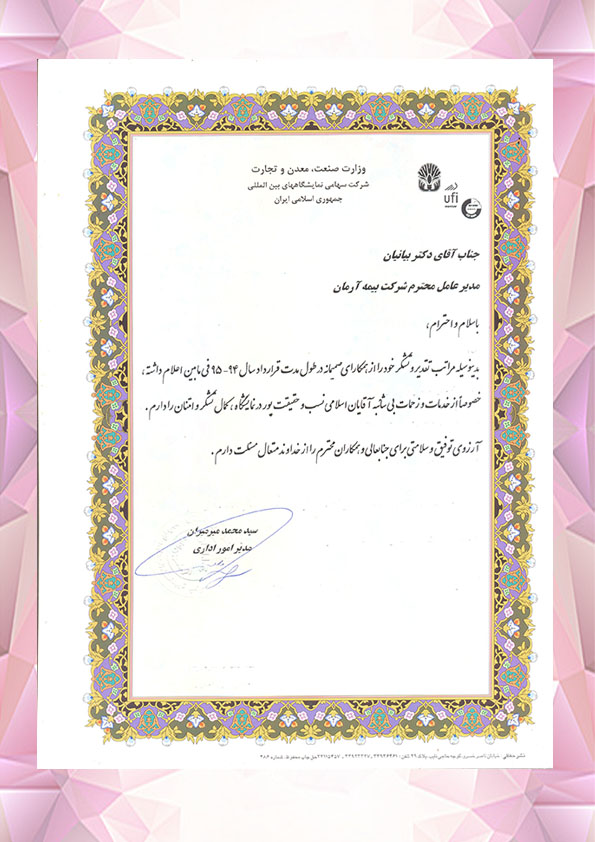 وزارت صنعت، معدن و تجارت
شرکت سهامی نمایشگاههای بین المللی
جمهوری اسلامی ایران
ufi
جناب آقای دکتر بیانیان
مدیر عامل محترم شرکت بیمه آرمان
با سلام و احترام ،
بدینوسیله مراتب تقدیر و تشکر خود را از همکارای صمیمانه در طول مدت قرار داد سال ۹۴-۹۵ فی مابین اعلام داشته ،
خصوصاً از خدمات و زحمات بی شائبه آقایان اسلامی نسب و حقیقت پور در نمایشگاه ، کمال تشکر و امتنان را دارم .
آرزوی توفیق و سلامتی برای جنابعالی و همکاران محترم را از خداوند متعال مسئلت دارم .
سید محمد
مدیر امور اداری